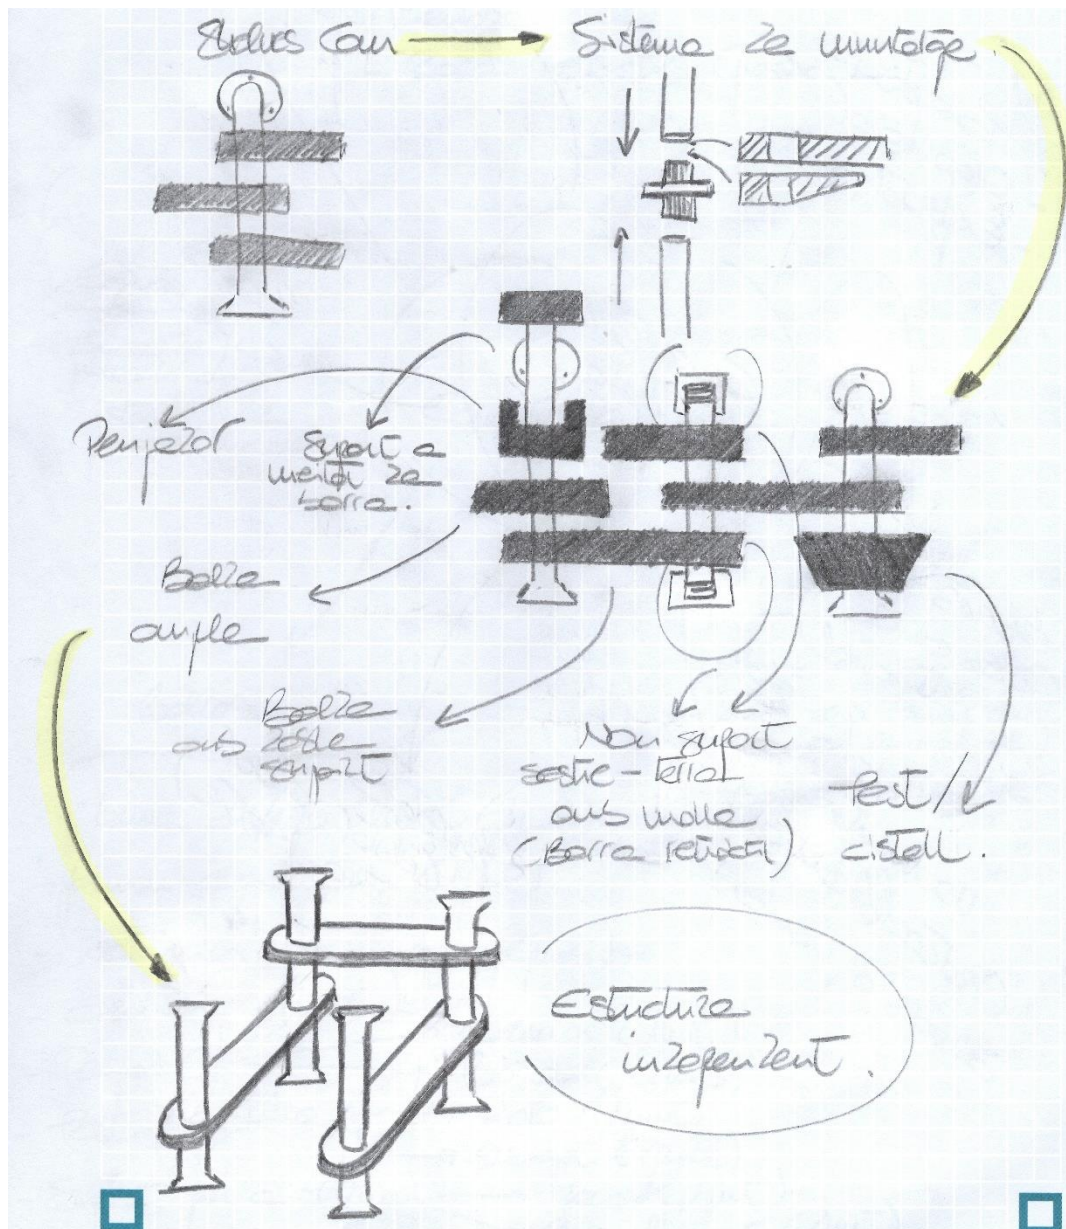 Sistema de muntatge.
Penjador
Suport a
meitat de
barra.
Balda
ample
Balda
amb doble
suport
Nou suport
sostre-terra
amb molla
(Barra)
test /
cistell.
Estructura
independent.